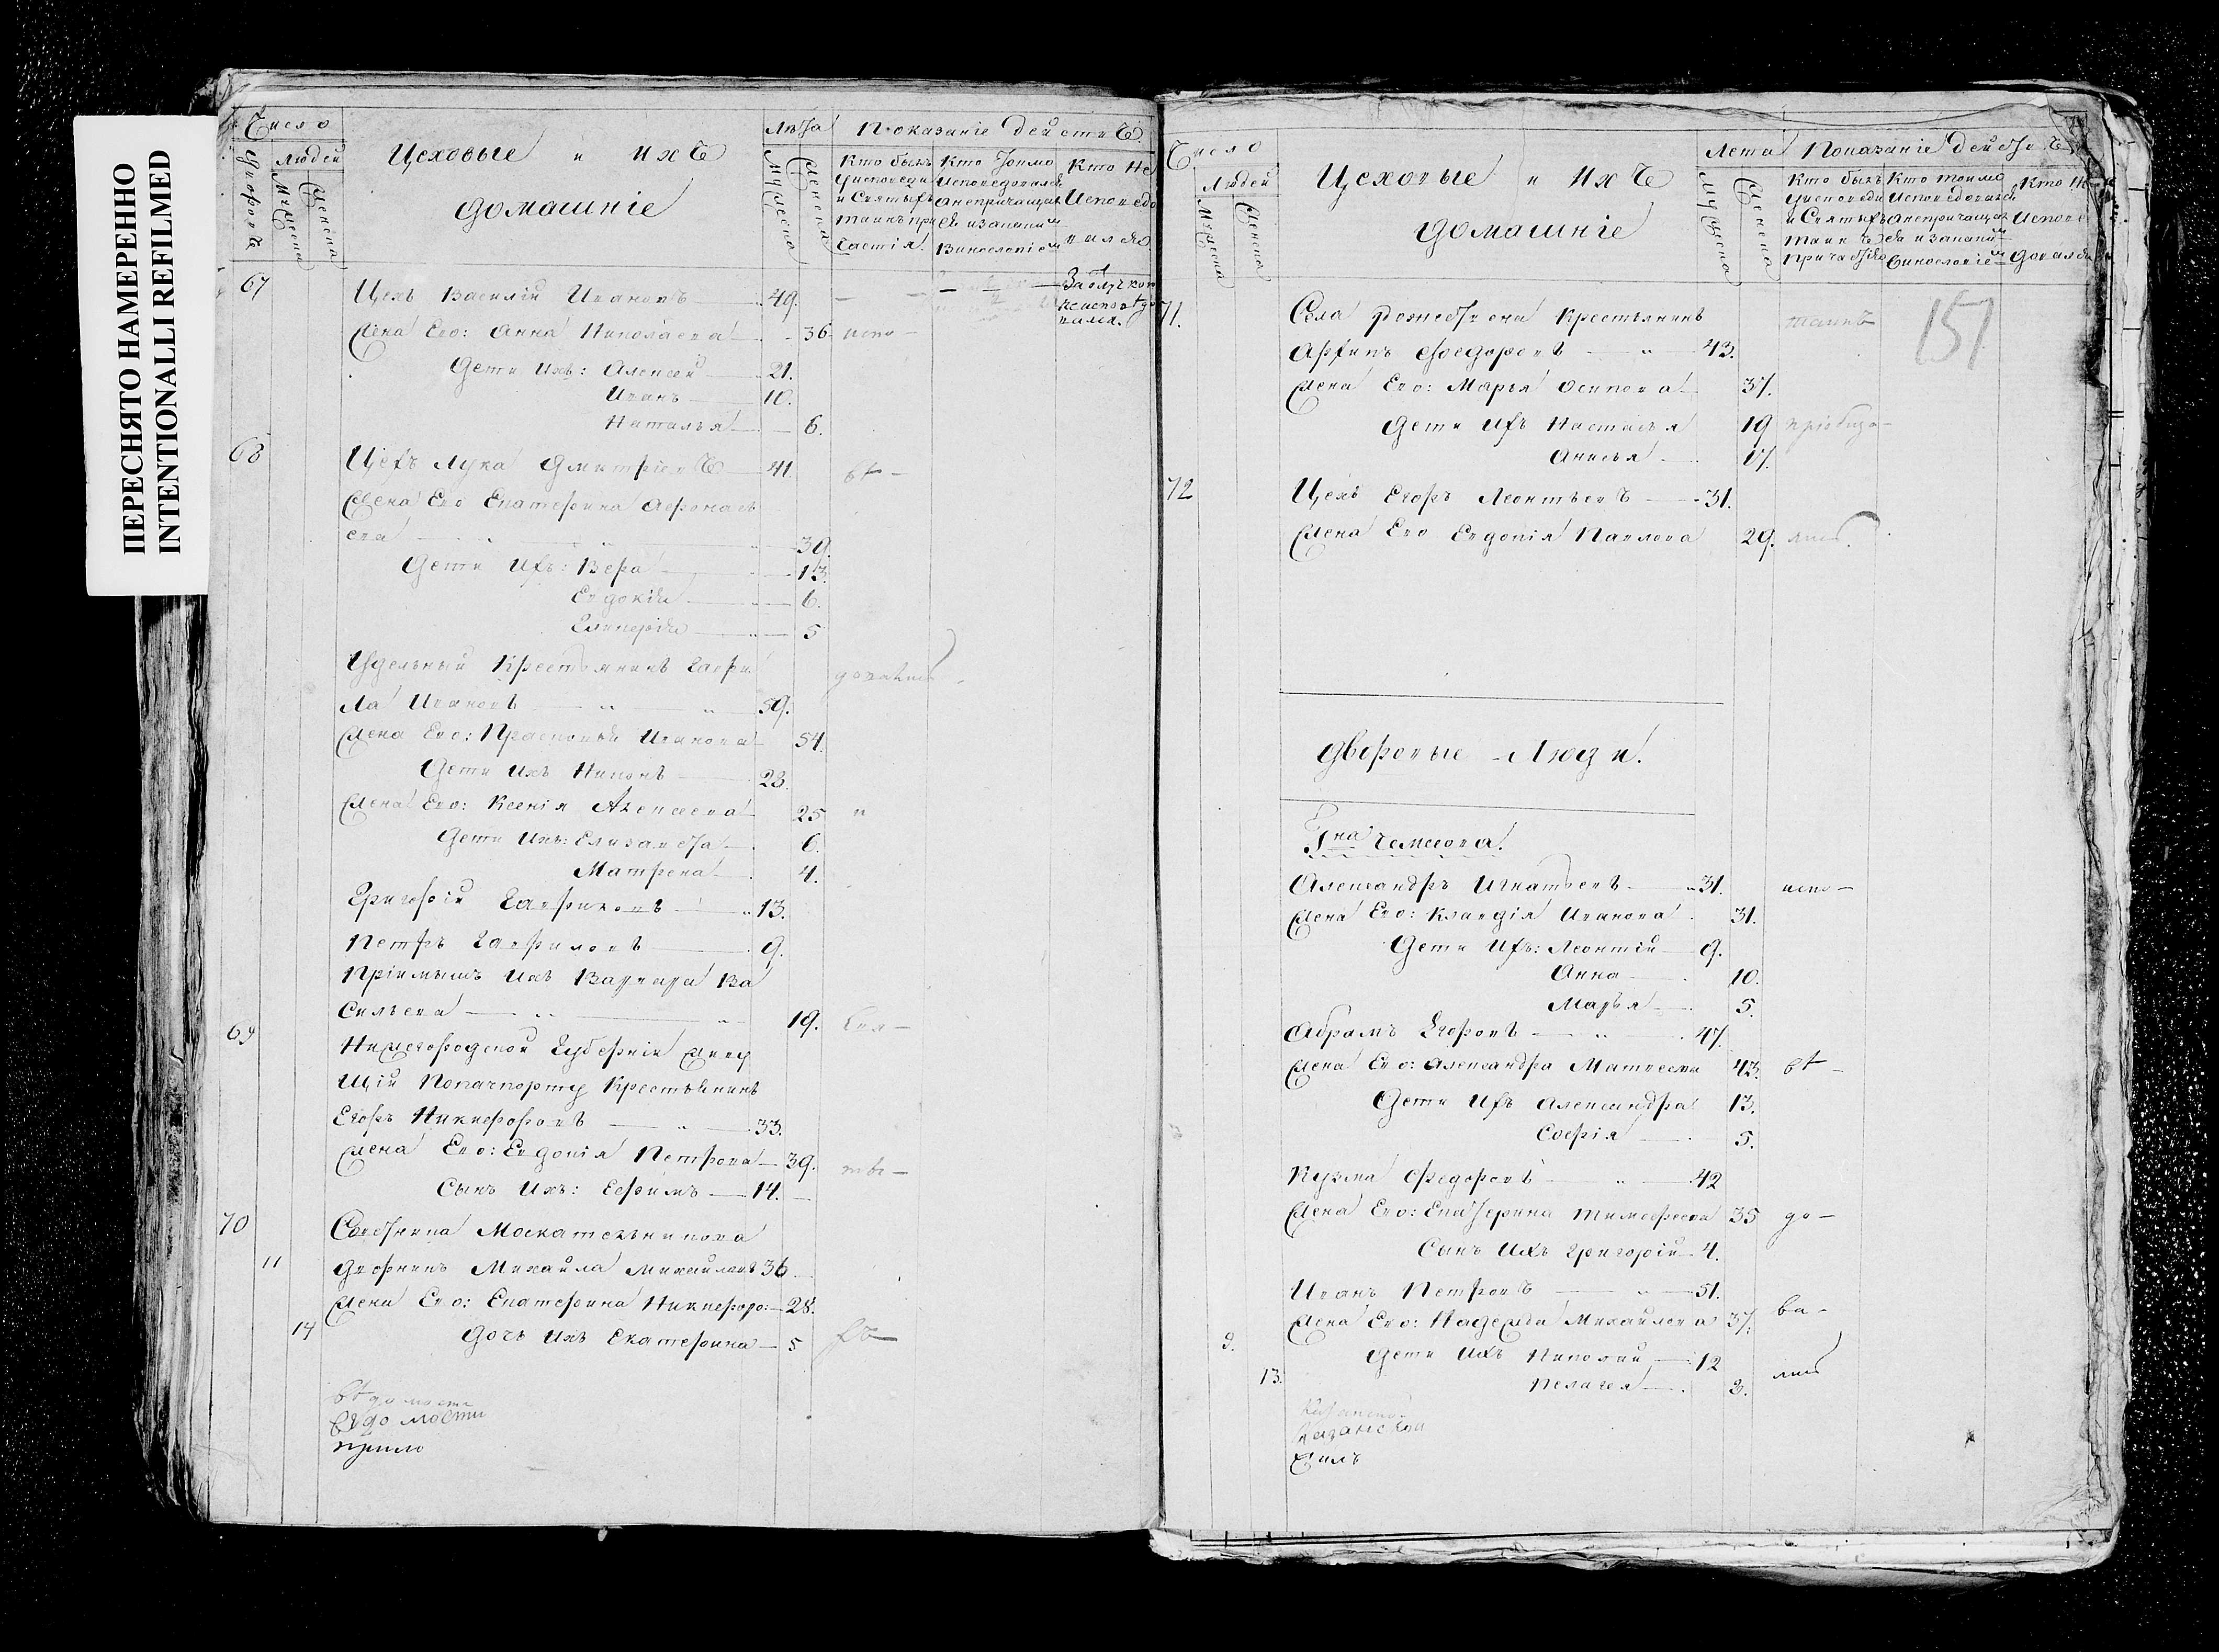 ПЕРЕСНЯТО НАМЕРЕННО
INTENTIONALLI REFILMED
Число
Людей
Дворовъ
Мужеска
Женска
Цеховые и ихъ
домашніе
Лѣта
Мужеска
Женска
Показаніе действъ
Кто былъ
уисповеди
и Святыхъ
таинъ при
частія
Кто токмо
исповедовался
анепричащал
ся изапаким
винословіем
Кто не
Исповедо
вался
67
Цехъ Василій Ивановъ 49.
Заотлучкою
неисповедо
вался.
Жена Ево: Анна Николаева 36. испо-
Дети Ихъ: Алексей 21.
Иванъ 10.
Наталья 6.
68
Цехъ Лука Дмитріевъ 41. вѣ-
Жена Ево Екатерина Афонась
ева 39.
Дети Ихъ: Вера 13.
Евдокія 6.
Гликерія 5
Удельный Крестьянинъ Гаври
ла Ивановъ 59.
Жена Ево: Прасковья Иванова 54.
Дети Ихъ Никонъ 23.
Жена Ево: Ксенія Алексеева 25 и
Дети Ихъ: Елизавета 6.
Матрена 4.
Григорій Гавриловъ 13.
Петръ Гавриловъ 9.
Пріимышъ Ихъ Варвара Ва
сильева 19.
69
Нижегородской Губерніи живу
щій Попачпорту Крестьянинъ
Егоръ Никифоровъ 33.
Жена Ево: Евдокія Петрова 39. ты-
Сынъ Ихъ: Ефимъ 14.
70
Советника Москательникова
11 дворникъ Михайла Михайловъ 36
Жена Ево: Екатерина Никифоро: 28.
14 Дочь Ихъ Екатерина 5 хъ
вѣдомости
вѣдомости
Число
Людей
Мужеска
Женска
Цеховые и Ихъ
домашніе
Лета
Мужеска
Женска
Показаніе действъ
Кто былъ
уисповеди
и Святыхъ
таинъ
причастія
Кто токмо
исповедовался
анепричащал
ся изапаким
винословіем
Кто не
Испове
довался
151
71.
Села Рожествена Крестьянинъ таинъ
Архипъ Федоровъ 43.
Жена Ево: Марья Осипова 37.
Дети Ихъ Настасья 19 пріобща-
Анисья 17.
72
Цехъ Егоръ Леонтьевъ 31.
Жена Ево Евдокія Павлова 29. лись.
Дворовые Люди.
Гна Чемесова.
Александръ Игнатьевъ 31. испо-
Жена Ево: Клавдія Иванова 31.
Дети Ихъ: Леонтій 9.
Анна 10.
Марья 5.
Абрамъ Егоровъ 47.
Жена Ево: Александра Матвеева 43. вѣ-
Дети Ихъ Александра 13.
Софія 5.
Кузма Федоровъ 42
Жена Ево: Екатерина Тимофеева 35 до-
Сынъ Ихъ Григорій 4.
Иванъ Петровъ 51.
Жена Ево: Надежда Михайлова 37. ва-
9. Дети Ихъ Николай 12
13. Пелагея 3. лись
Казанской